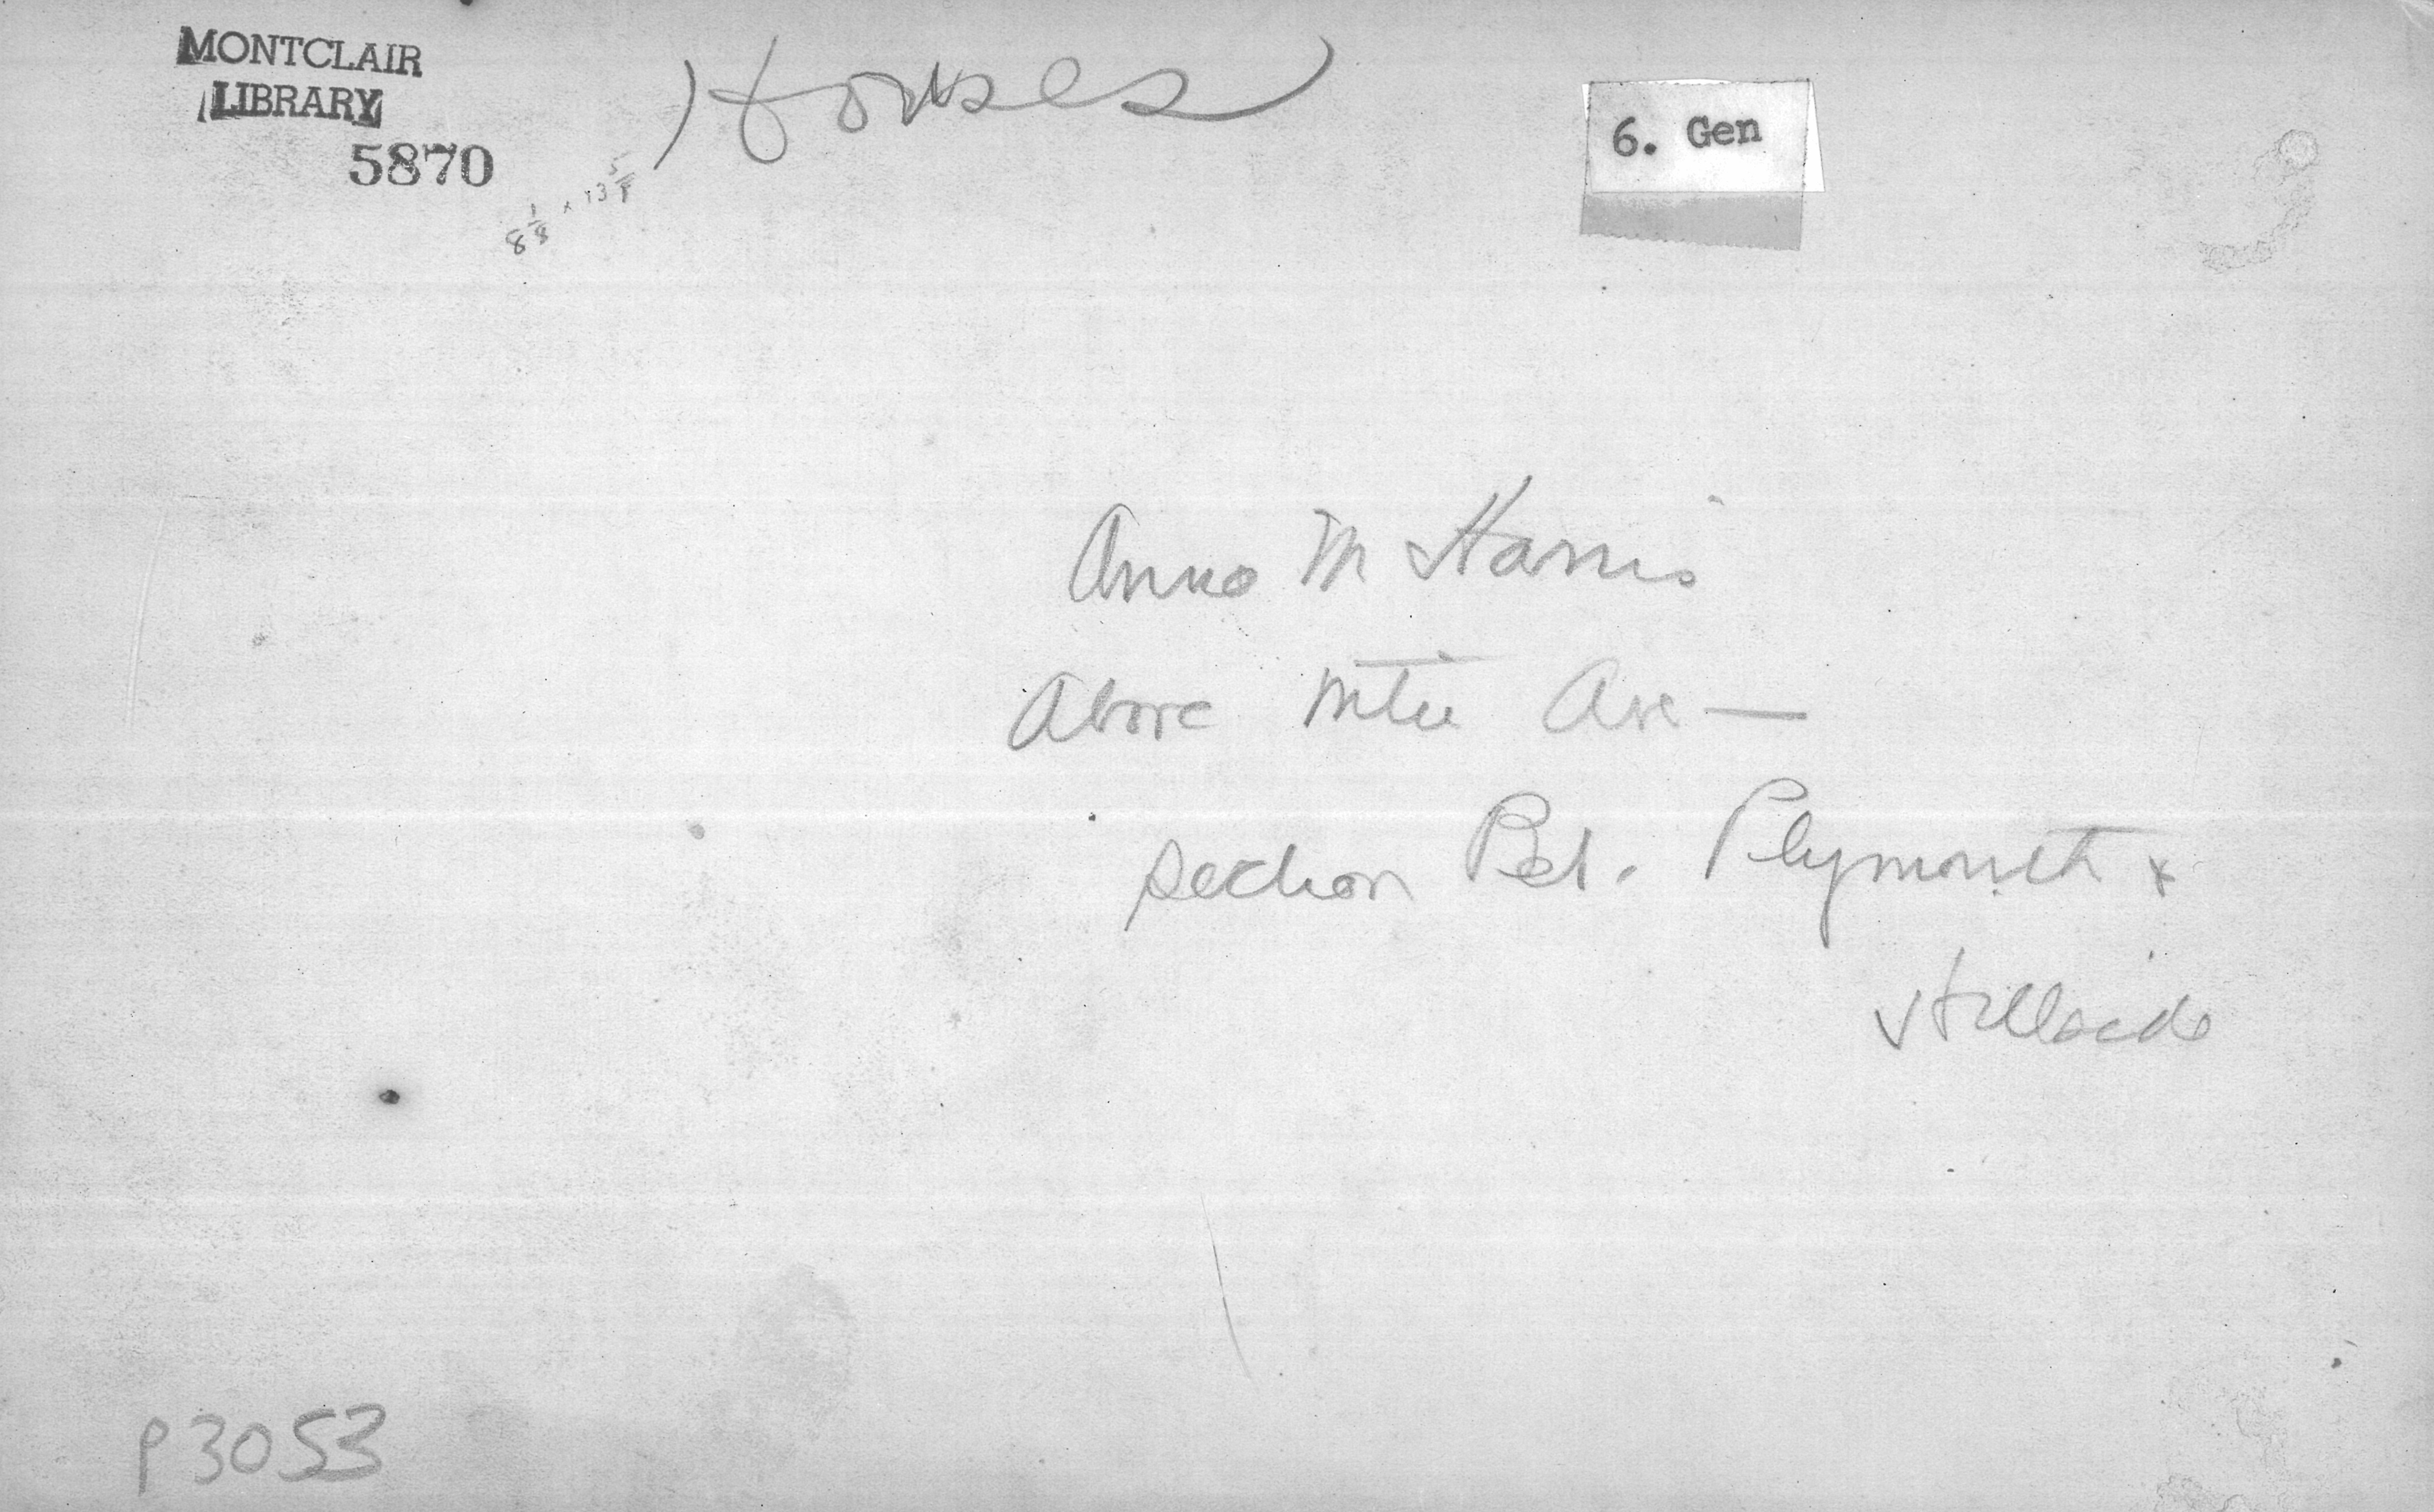 MONTCLAIR
LIBRARY
5870
Houses
8 1/8 x 13 5/8
6. Gen
Anna M Harris
Above Mtn Ave —
section Bet. Plymouth +
Hillside
P3053